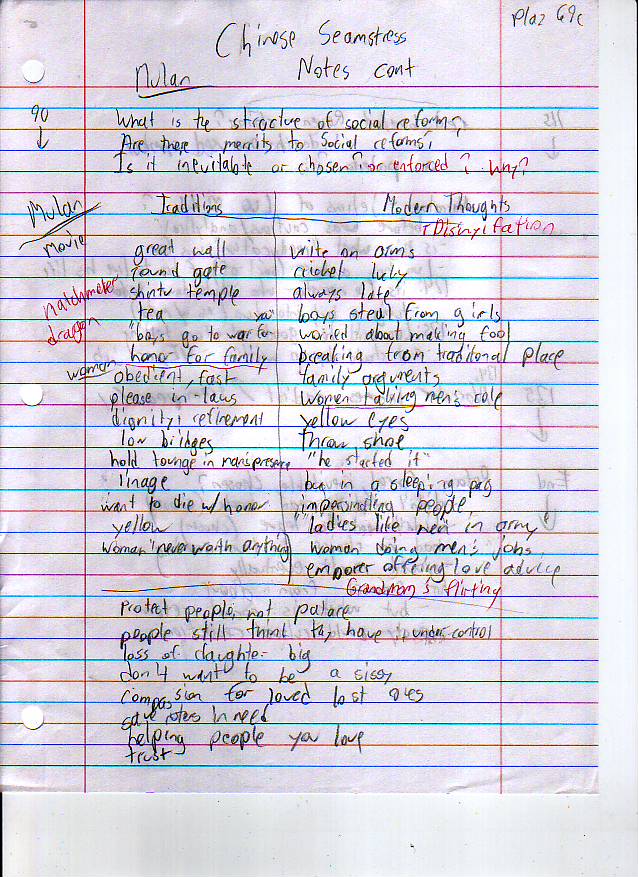 plaz 69c
Chinese Seamstress
Mulan Notes cont
90 What is the structure of social reforms?
Are there merrits to social reforms?
Is it inevitable or chosen? or enforced? Why?
Mulan Traditions Modern Thoughts
movie ↑Disnyifation
great wall write on arms
round gate cricket lucky
matchmeter shintu temple always late
dragon tea boys steal from girls
"boys go to war for you" worried about making fool
honor for family breaking from traditonal place
woman obedient, fast family arguments
please in-laws Women taking men's role
dignity; refinement yellow eyes
low bridges throw shoe
hold tounge in man's presence "he started it"
linage bun in a sleeping bag
want to die w/ honor impersindling people
yellow "ladies like men in army"
woman "never worth anything woman doing men's jobs
emporer offering love advice
Grandmom's flirting
Protect people, not palace
people still think tay have under control
loss of daughter big
don't want to be a sissy
compassion for loved lost ones
save rotes in need
helping people you love
trust